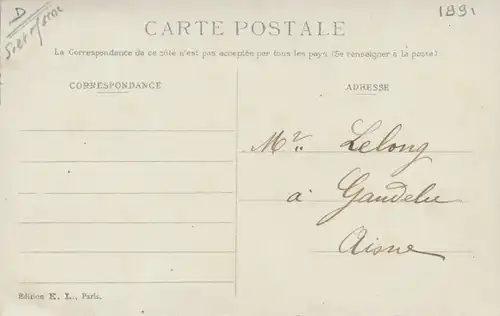 D
1891
CARTE POSTALE
La Correspondance de ce côté n'est pas acceptée par tous les pays (Se renseigner à la poste)
CORRESPONDANCE
ADRESSE
Mr. Lelong
à Gandelu
Aisne
Edition E. L., Paris.